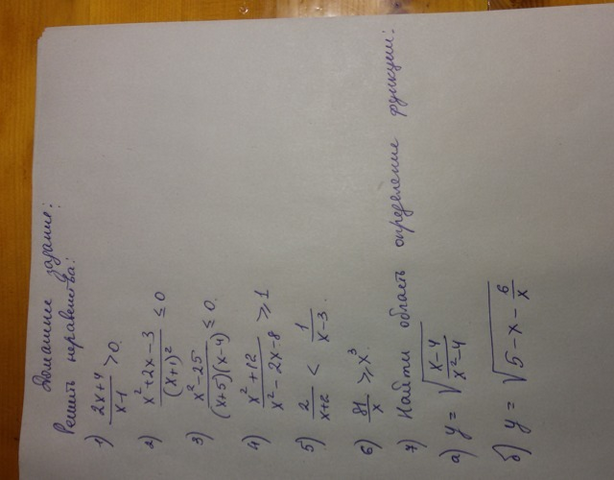 Домашнее задание:
Решить неравенства:
1) (2x+4)/(x-1) > 0
2) (x²+2x-3)/(x+1)² ≤ 0
3) (x²-25)/((x+5)(x-4)) ≤ 0.
4) (x²+12)/(x²-2x-8) ⩾ 1
5) 2/(x+2) < 1/(x-3).
6) 81/x ⩾ x³
7) Найти область определение функции:
а) y = √((x-4)/(x²-4))
б) y = √(5-x-6/x)